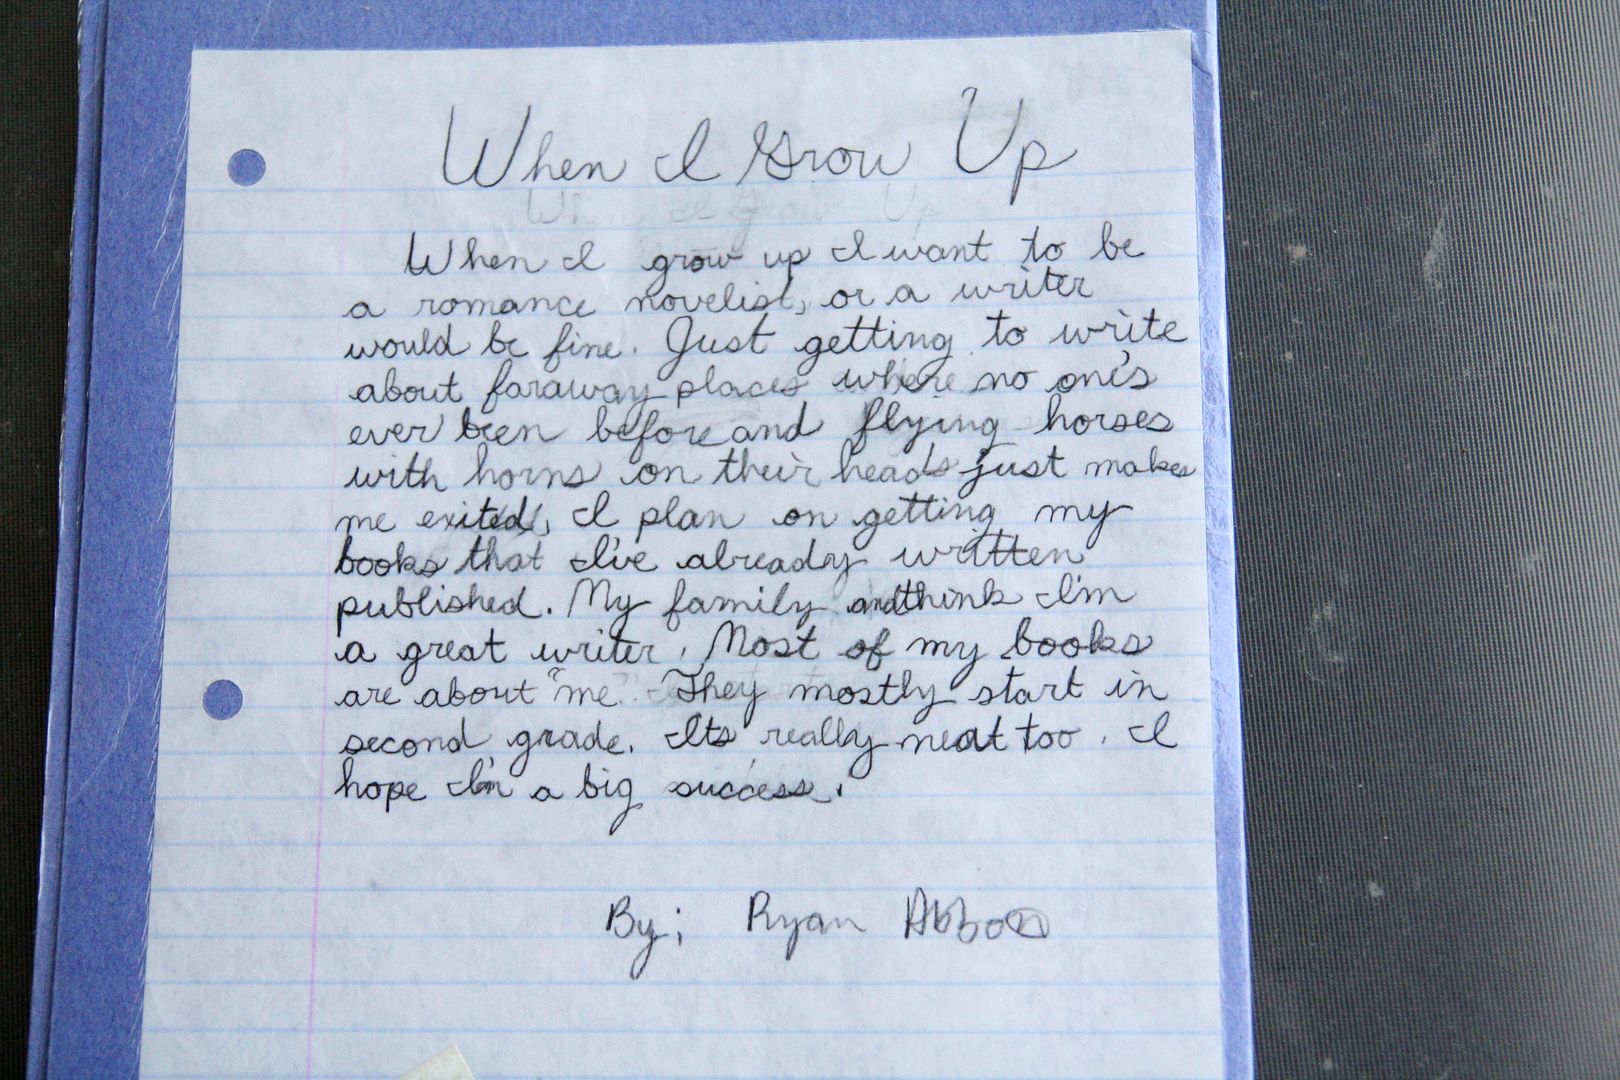 When I Grow Up
When I Grow Up
When I grow up I want to be
a romance novelist, or a writer
would be fine. Just getting to write
about faraway places where no one's
ever been before and flying horses
with horns on their heads just makes
me exited, I plan on getting my
books that I've already written
published. My family and think I'm
a great writer. Most of my books
are about "me". They mostly start in
second grade. Its really neat too. I
hope I'm a big success.
By; Ryan